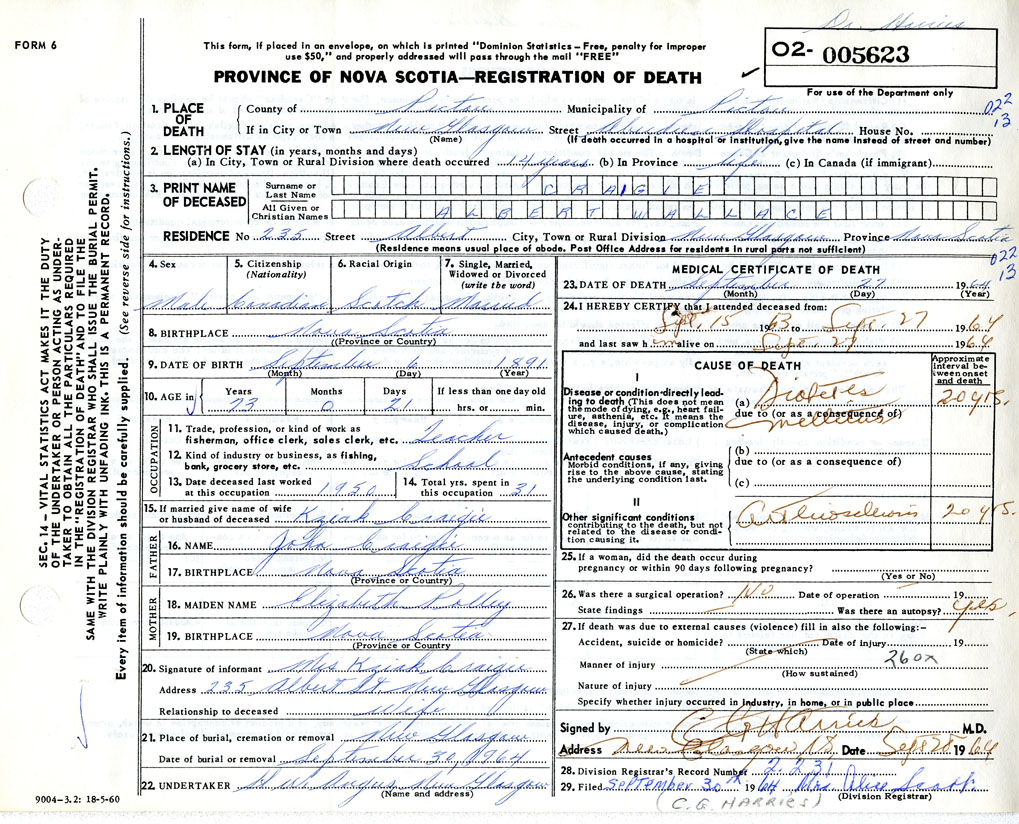 Dr. Harries
FORM 6
This form, if placed in an envelope, on which is printed "Dominion Statistics – Free, penalty for improper
use $50," and properly addressed will pass through the mail "FREE"
PROVINCE OF NOVA SCOTIA—REGISTRATION OF DEATH
02- 005623
For use of the Department only
022
13
1. PLACE OF DEATH County of Pictou Municipality of Pictou
If in City or Town New Glasgow Street Aberdeen Hospital House No.
(Name) (If death occurred in a hospital or institution, give the name instead of street and number)
2. LENGTH OF STAY (in years, months and days)
(a) In City, Town or Rural Division where death occurred 14 years (b) In Province life (c) In Canada (if immigrant)
3. PRINT NAME OF DECEASED
Surname or Last Name CRAIGIE
All Given or Christian Names ALBERT WALLACE
RESIDENCE No 235 Street Albert City, Town or Rural Division New Glasgow Province Nova Scotia
(Residence means usual place of abode. Post Office Address for residents in rural parts not sufficient)
022
13
4. Sex Male
5. Citizenship (Nationality) Canadian
6. Racial Origin Scotch
7. Single, Married, Widowed or Divorced (write the word) Married
8. BIRTHPLACE Nova Scotia
(Province or Country)
9. DATE OF BIRTH September 6 1891
(Month) (Day) (Year)
10. AGE in Years 73 Months 0 Days 21 If less than one day old hrs. or min.
OCCUPATION
11. Trade, profession, or kind of work as
fisherman, office clerk, sales clerk, etc. Teacher
12. Kind of industry or business, as fishing,
bank, grocery store, etc. School
13. Date deceased last worked at this occupation 1950
14. Total yrs. spent in this occupation 31
15. If married give name of wife
or husband of deceased Kziah Craigie
FATHER
16. NAME John Craigie
17. BIRTHPLACE Nova Scotia
(Province or Country)
MOTHER
18. MAIDEN NAME Elizabeth Polley
19. BIRTHPLACE Nova Scotia
(Province or Country)
20. Signature of informant Mrs Kziah Craigie
Address 235 Albert St. New Glasgow
Relationship to deceased wife
21. Place of burial, cremation or removal New Glasgow
Date of burial or removal September 30, 1964
22. UNDERTAKER H.W. Angus, New Glasgow
(Name and address)
9004-3.2: 18-5-60
MEDICAL CERTIFICATE OF DEATH
23. DATE OF DEATH September 27 1964
(Month) (Day) (Year)
24. I HEREBY CERTIFY that I attended deceased from:
Sept. 15 1963 to Sept. 27 1964
and last saw him alive on Sept. 27 1964
CAUSE OF DEATH
Approximate interval between onset and death
I
Disease or condition directly leading to death (This does not mean
the mode of dying, e.g., heart failure, asthenia, etc. It means the
disease, injury, or complication which caused death.)
(a) Diabetes 20 yrs.
due to (or as a consequence of)
mellitus
Antecedent causes
Morbid conditions, if any, giving
rise to the above cause, stating
the underlying condition last.
(b)
due to (or as a consequence of)
(c)
II
Other significant conditions
contributing to the death, but not
related to the disease or condition causing it.
Arteriosclerosis 20 yrs.
25. If a woman, did the death occur during
pregnancy or within 90 days following pregnancy?
(Yes or No)
26. Was there a surgical operation? No Date of operation 19
State findings Was there an autopsy? yes.
27. If death was due to external causes (violence) fill in also the following:–
Accident, suicide or homicide? Date of injury 19
(State which)
260X
Manner of injury
(How sustained)
Nature of injury
Specify whether injury occurred in industry, in home, or in public place
Signed by C G Harries M.D.
Address New Glasgow NS Date Sept 28 1964
28. Division Registrar's Record Number 2231
29. Filed September 30 1964 Mrs Alice Scott.
(Division Registrar)
(C. G. HARRIES)
SEC. 14 – VITAL STATISTICS ACT MAKES IT THE DUTY
OF THE UNDERTAKER OR PERSON ACTING AS UNDERTAKER
TO OBTAIN ALL THE PARTICULARS REQUIRED
IN THE "REGISTRATION OF DEATH" AND TO FILE THE
SAME WITH THE DIVISION REGISTRAR WHO SHALL ISSUE THE BURIAL PERMIT.
WRITE PLAINLY WITH UNFADING INK. THIS IS A PERMANENT RECORD.
Every item of information should be carefully supplied. (See reverse side for instructions.)